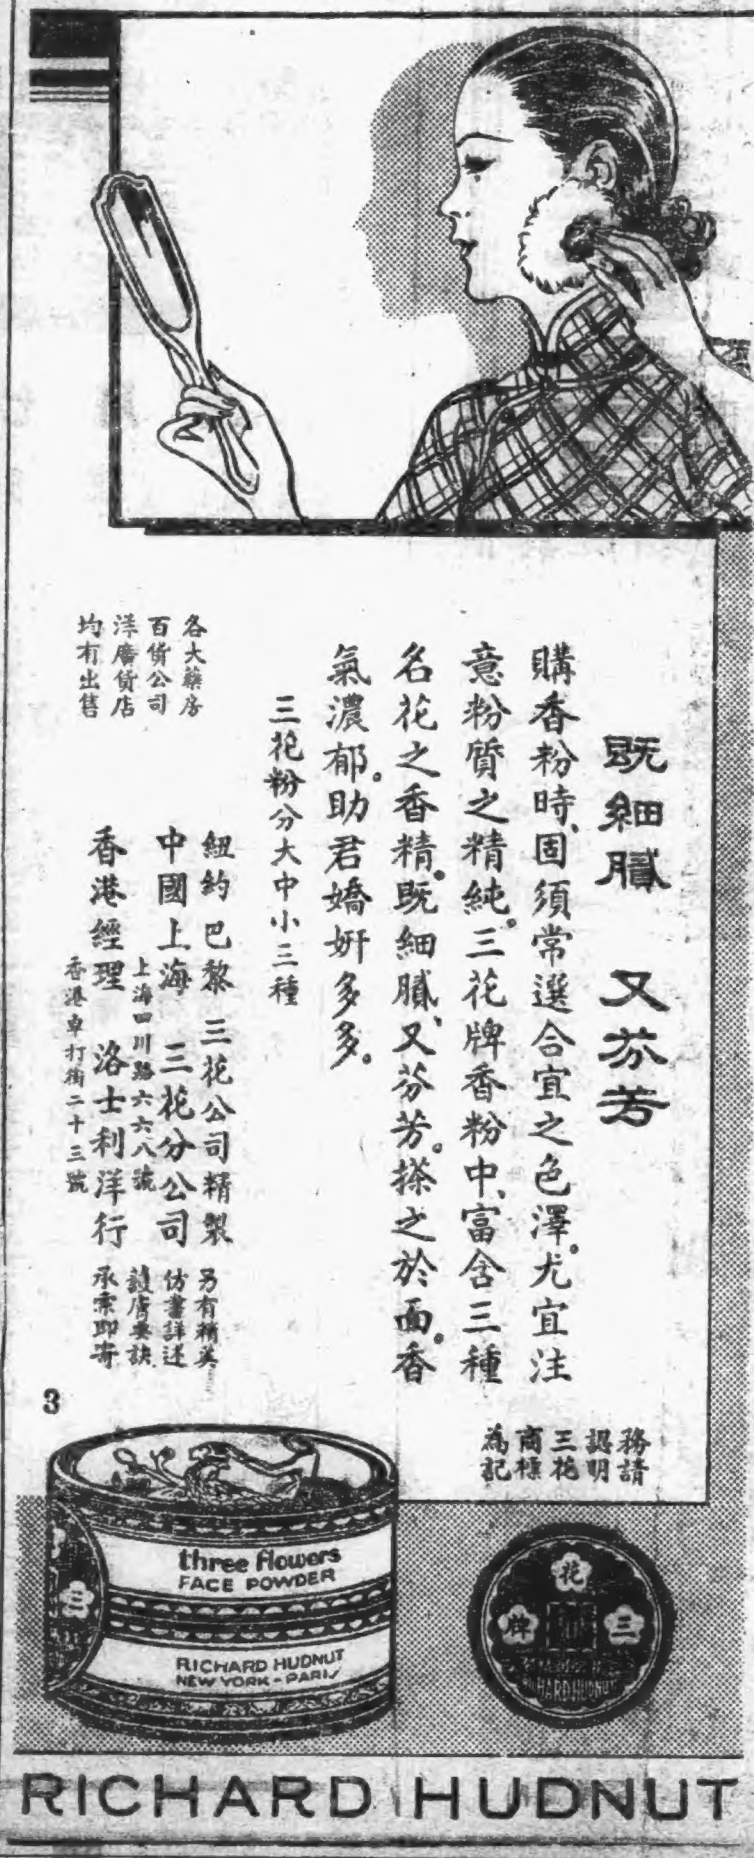 既細膩　又芬芳
購香粉時、固須常選合宜之色澤。尤宜注
意粉質之精純。三花牌香粉中、富含三種
名花之香精。既細膩、又芬芳。搽之於面。香
氣濃郁。助君嬌姸多多。
三花粉分大中小三種
各大藥房
百貨公司
洋廣貨店
均有出售
紐約巴黎　三花公司精製
中國上海　三花分公司
上海四川路六六八號
香港經理　洛士利洋行
香港卓打街二十三號
另有精美
仿書詳述
護膚要訣
承索即寄
務請
認明
三花
商標
為記
3
three flowers
FACE POWDER
RICHARD HUDNUT
NEW YORK - PARIS
三
花
三
牌
RICHARD HUDNUT
RICHARD HUDNUT